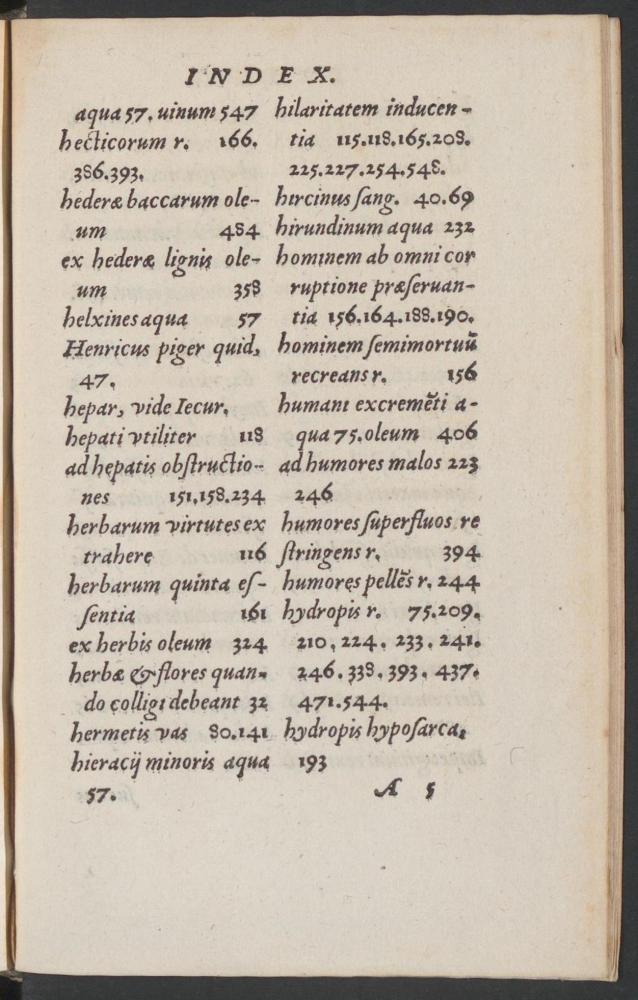 INDEX.
aqua 57. uinum 547
hecticorum r. 166.
386.393.
hederæ baccarum ole-
um 484
ex hederæ lignis ole-
um 358
helxines aqua 57
Henricus piger quid,
47.
hepar, vide Iecur.
hepati vtiliter 118
ad hepatis obſtructio-
nes 151.158.234
herbarum virtutes ex
trahere 116
herbarum quinta eſ-
ſentia 161
ex herbis oleum 324
herbæ & flores quan-
do colligi debeant 32
hermetis vas 80.141
hieracij minoris aqua
57.
hilaritatem inducen-
tia 115.118.165.208.
225.227.254.548.
hircinus ſang. 40.69
hirundinum aqua 232
hominem ab omni cor
ruptione præſeruan-
tia 156.164.188.190.
hominem ſemimortuũ
recreans r. 156
humani excremẽti a-
qua 75. oleum 406
ad humores malos 223
246
humores ſuperfluos re
ſtringens r. 394
humores pellẽs r. 244
hydropis r. 75.209.
210.224.233.241.
246.338.393.437.
471.544.
hydropis hypoſarca.
193
A 5